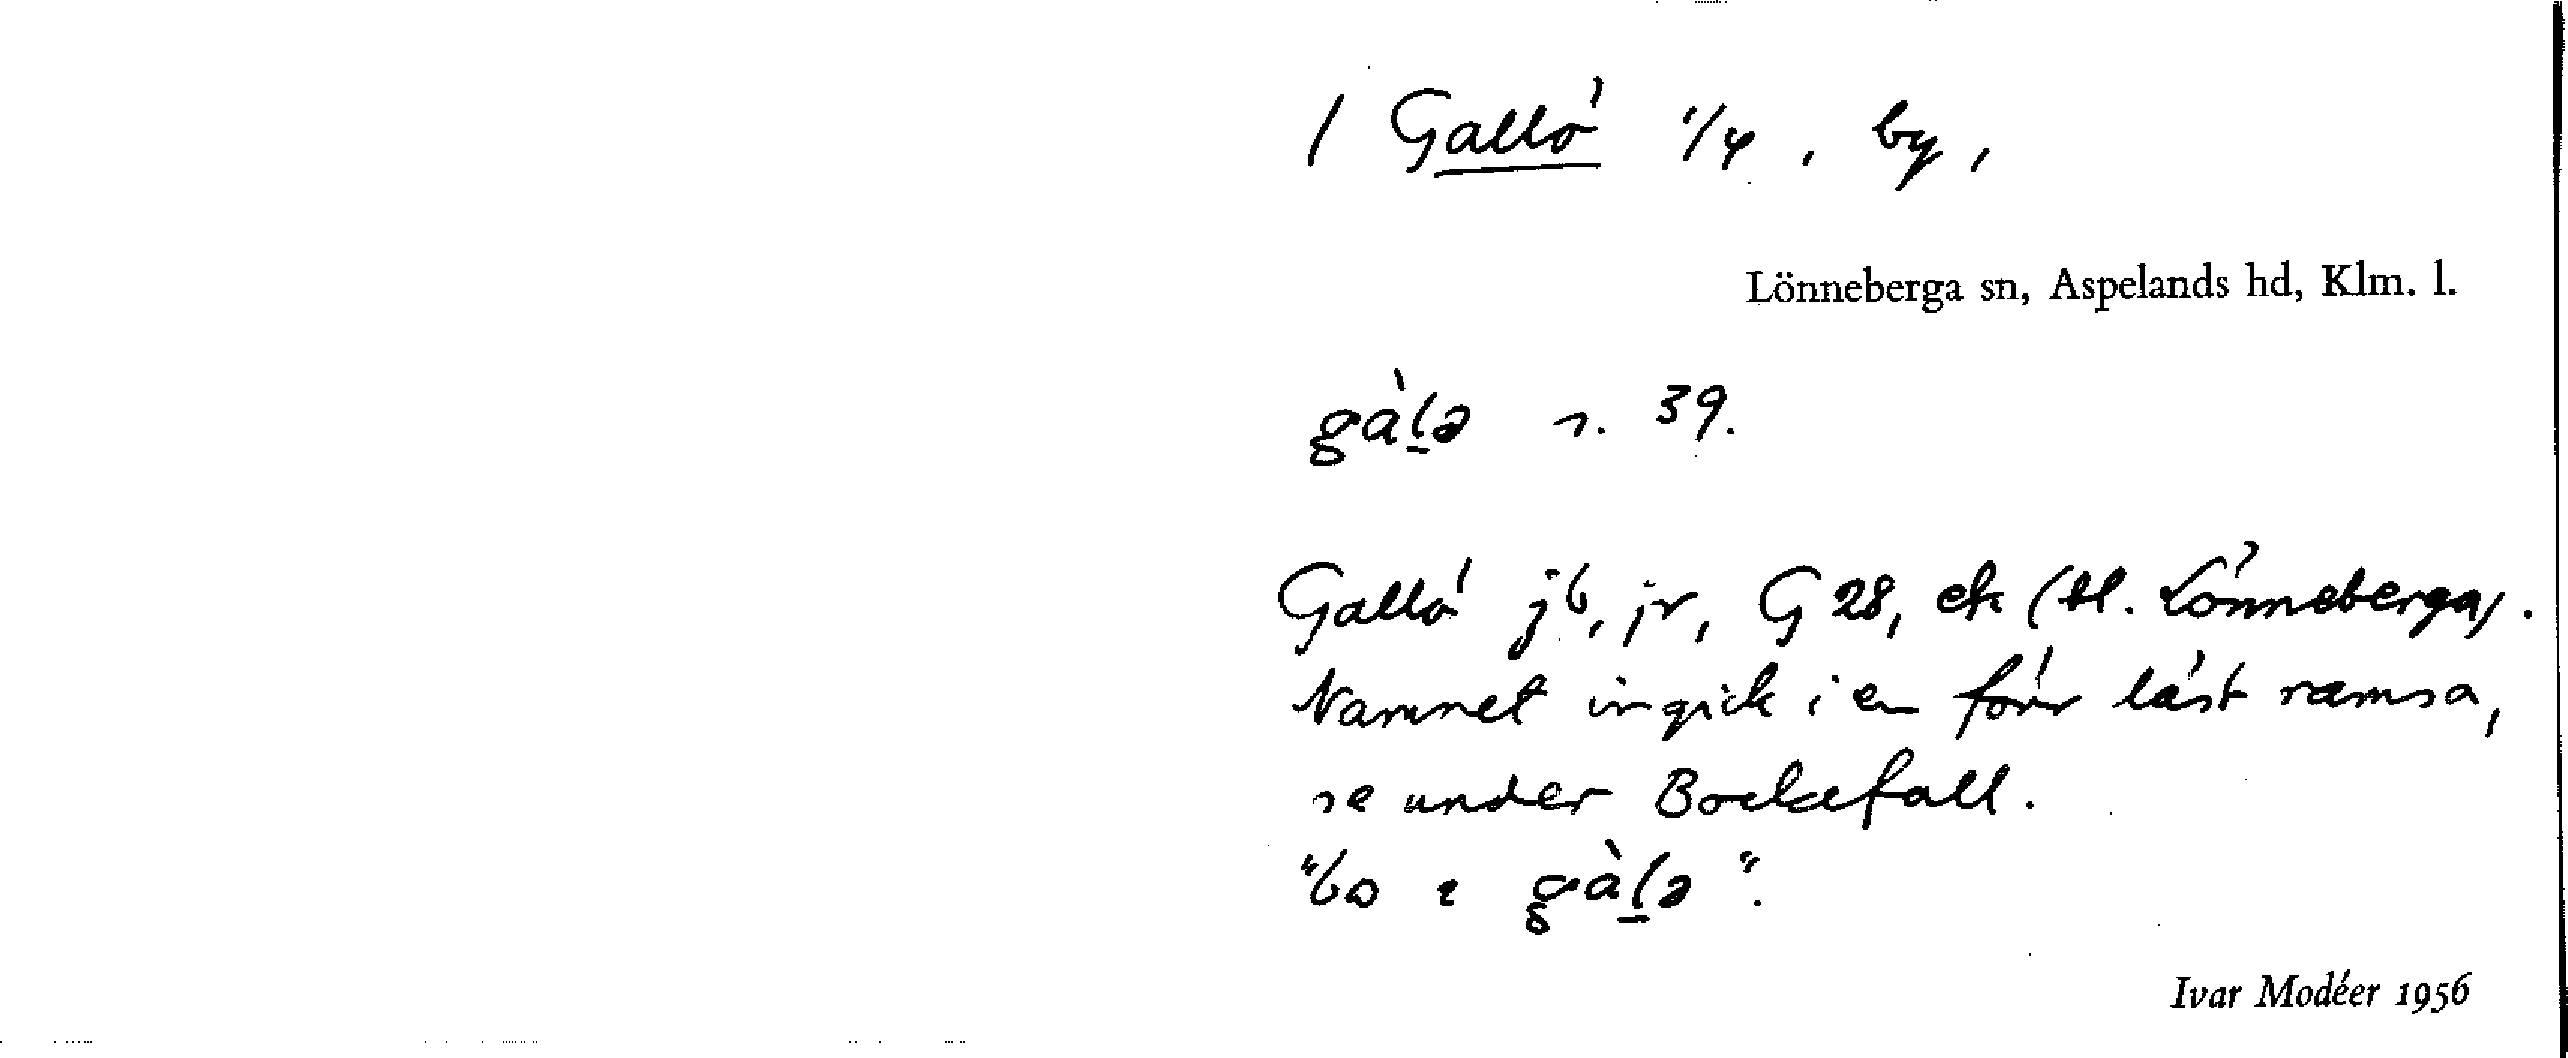 / Gallö 1/4, by,
Lönneberga sn, Aspelands hd, Klm. l.
gàl̠ə s. 39.
Gallö jb, jr, G 28, ek (bl. Lönneberga).
Namnet ingick i en förr läst ramsa,
se under Bockefall.
"bo ɪ gàl̠ə".
Ivar Modéer 1956